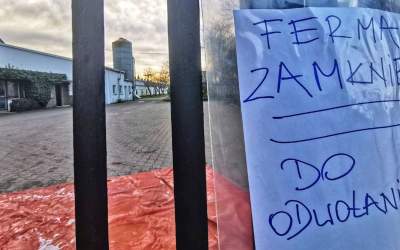 FERMA
ZAMKNIĘ
DO
ODWOŁANI